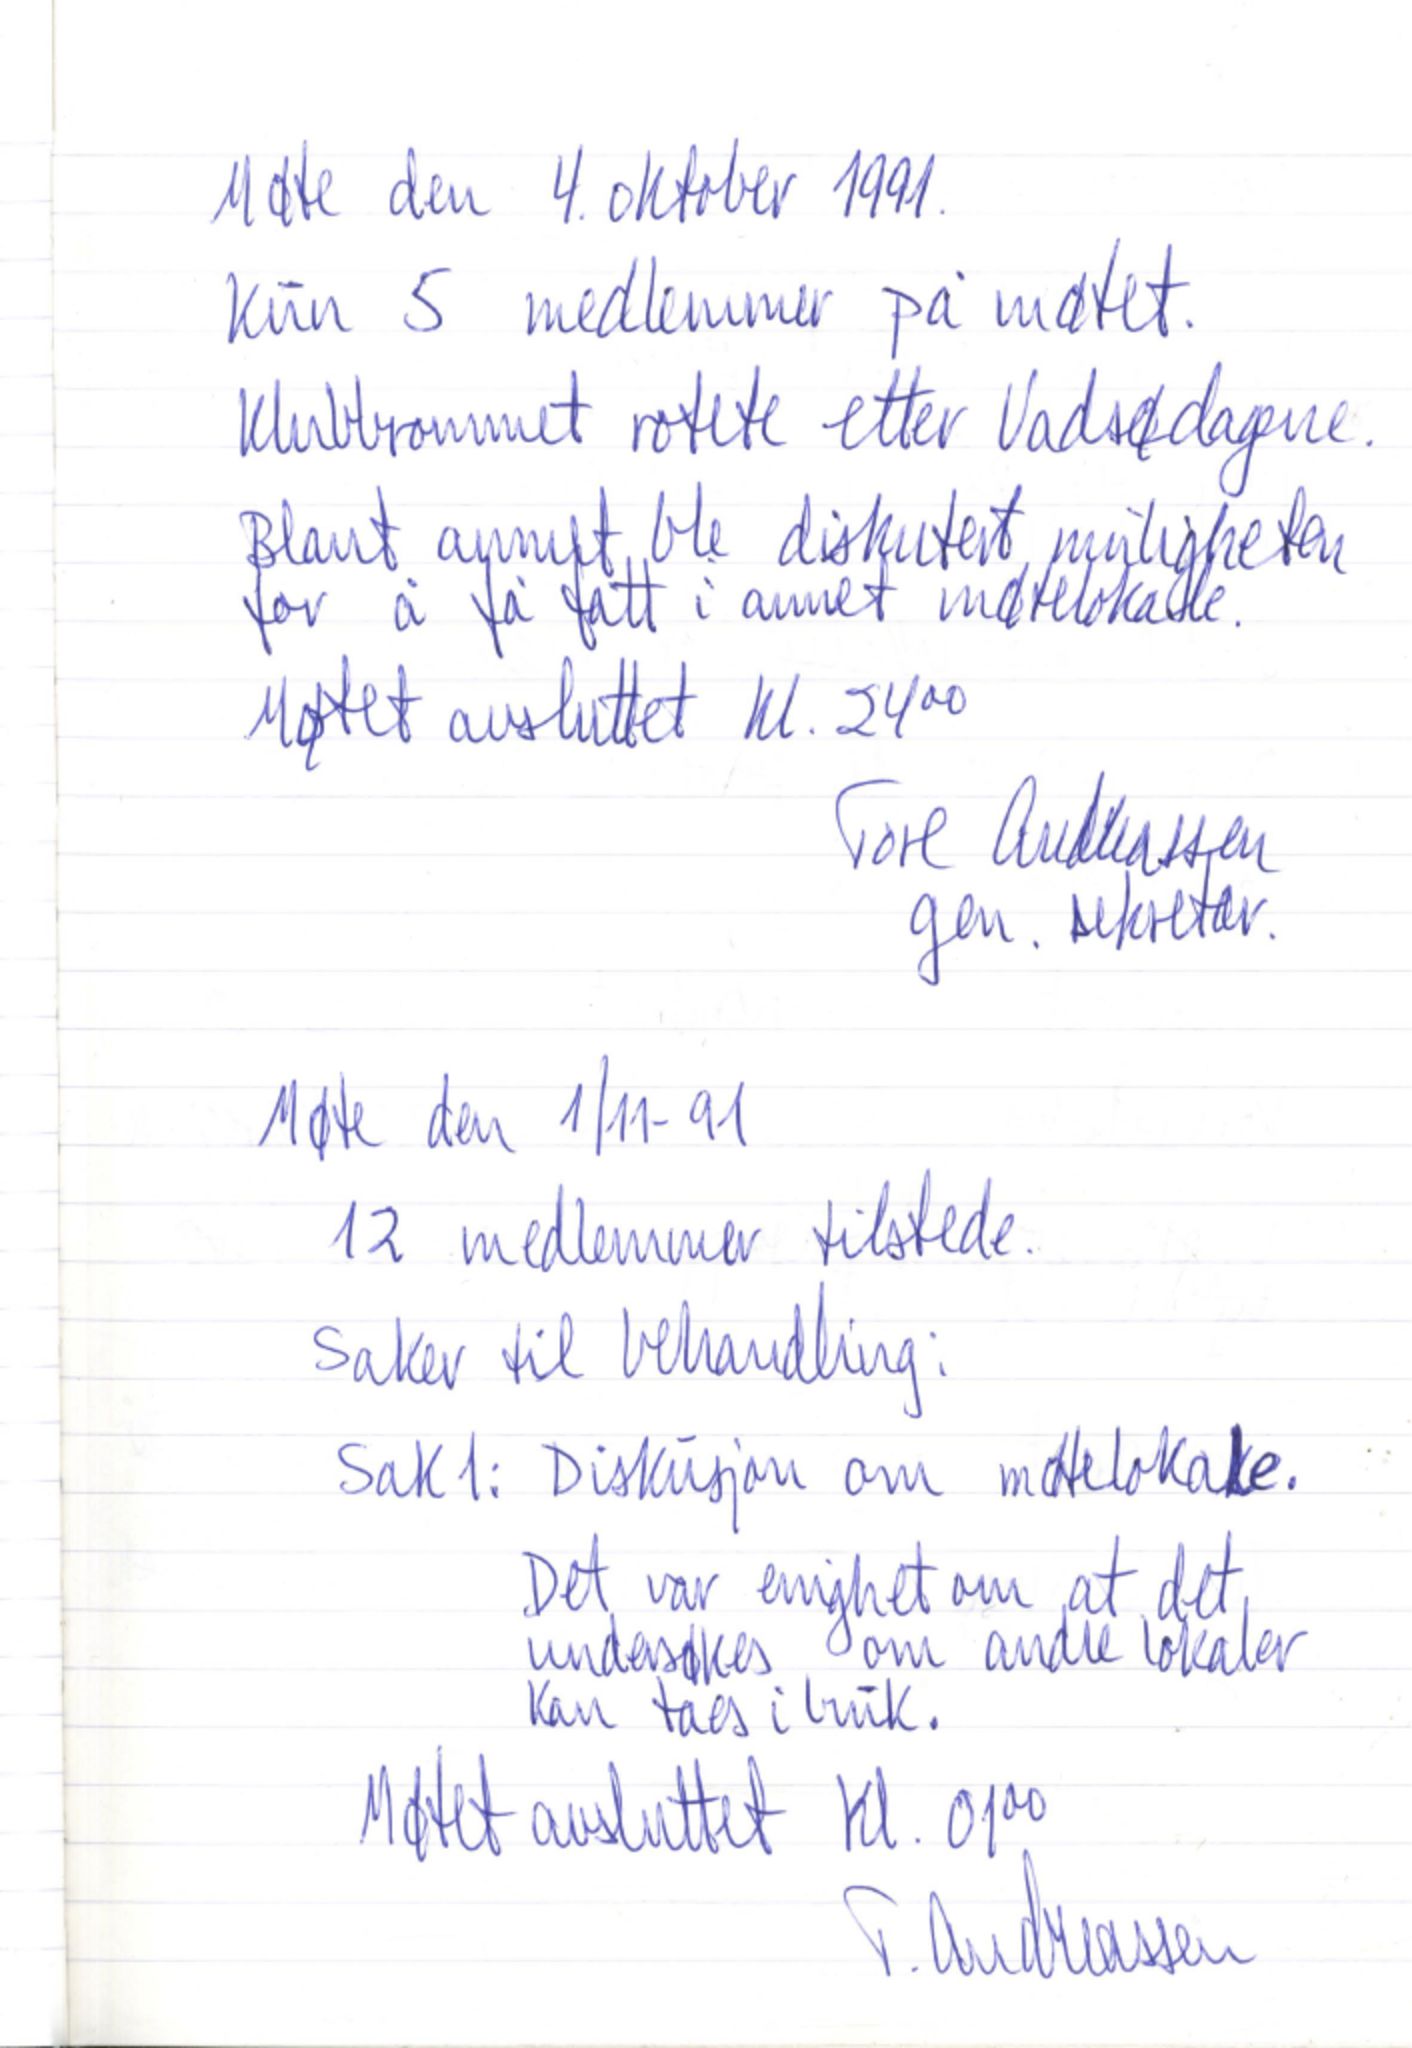 Møte den 4. oktober 1991.
Kun 5 medlemmer på møtet.
Klubbrommet rotete etter Vadsødagene.
Blant annet ble diskutert muligheten
for å få fatt i annet møtelokale.
Møtet avsluttet kl. 24⁰⁰
Tore Andreassen
gen. sekretær.
Møte den 1/11-91
12 medlemmer tilstede.
Saker til behandling:
Sak 1: Diskusjon om møtelokale.
Det var enighet om at det
undersøkes om andre lokaler
kan taes i bruk.
Møtet avsluttet kl. 01⁰⁰
T. Andreassen